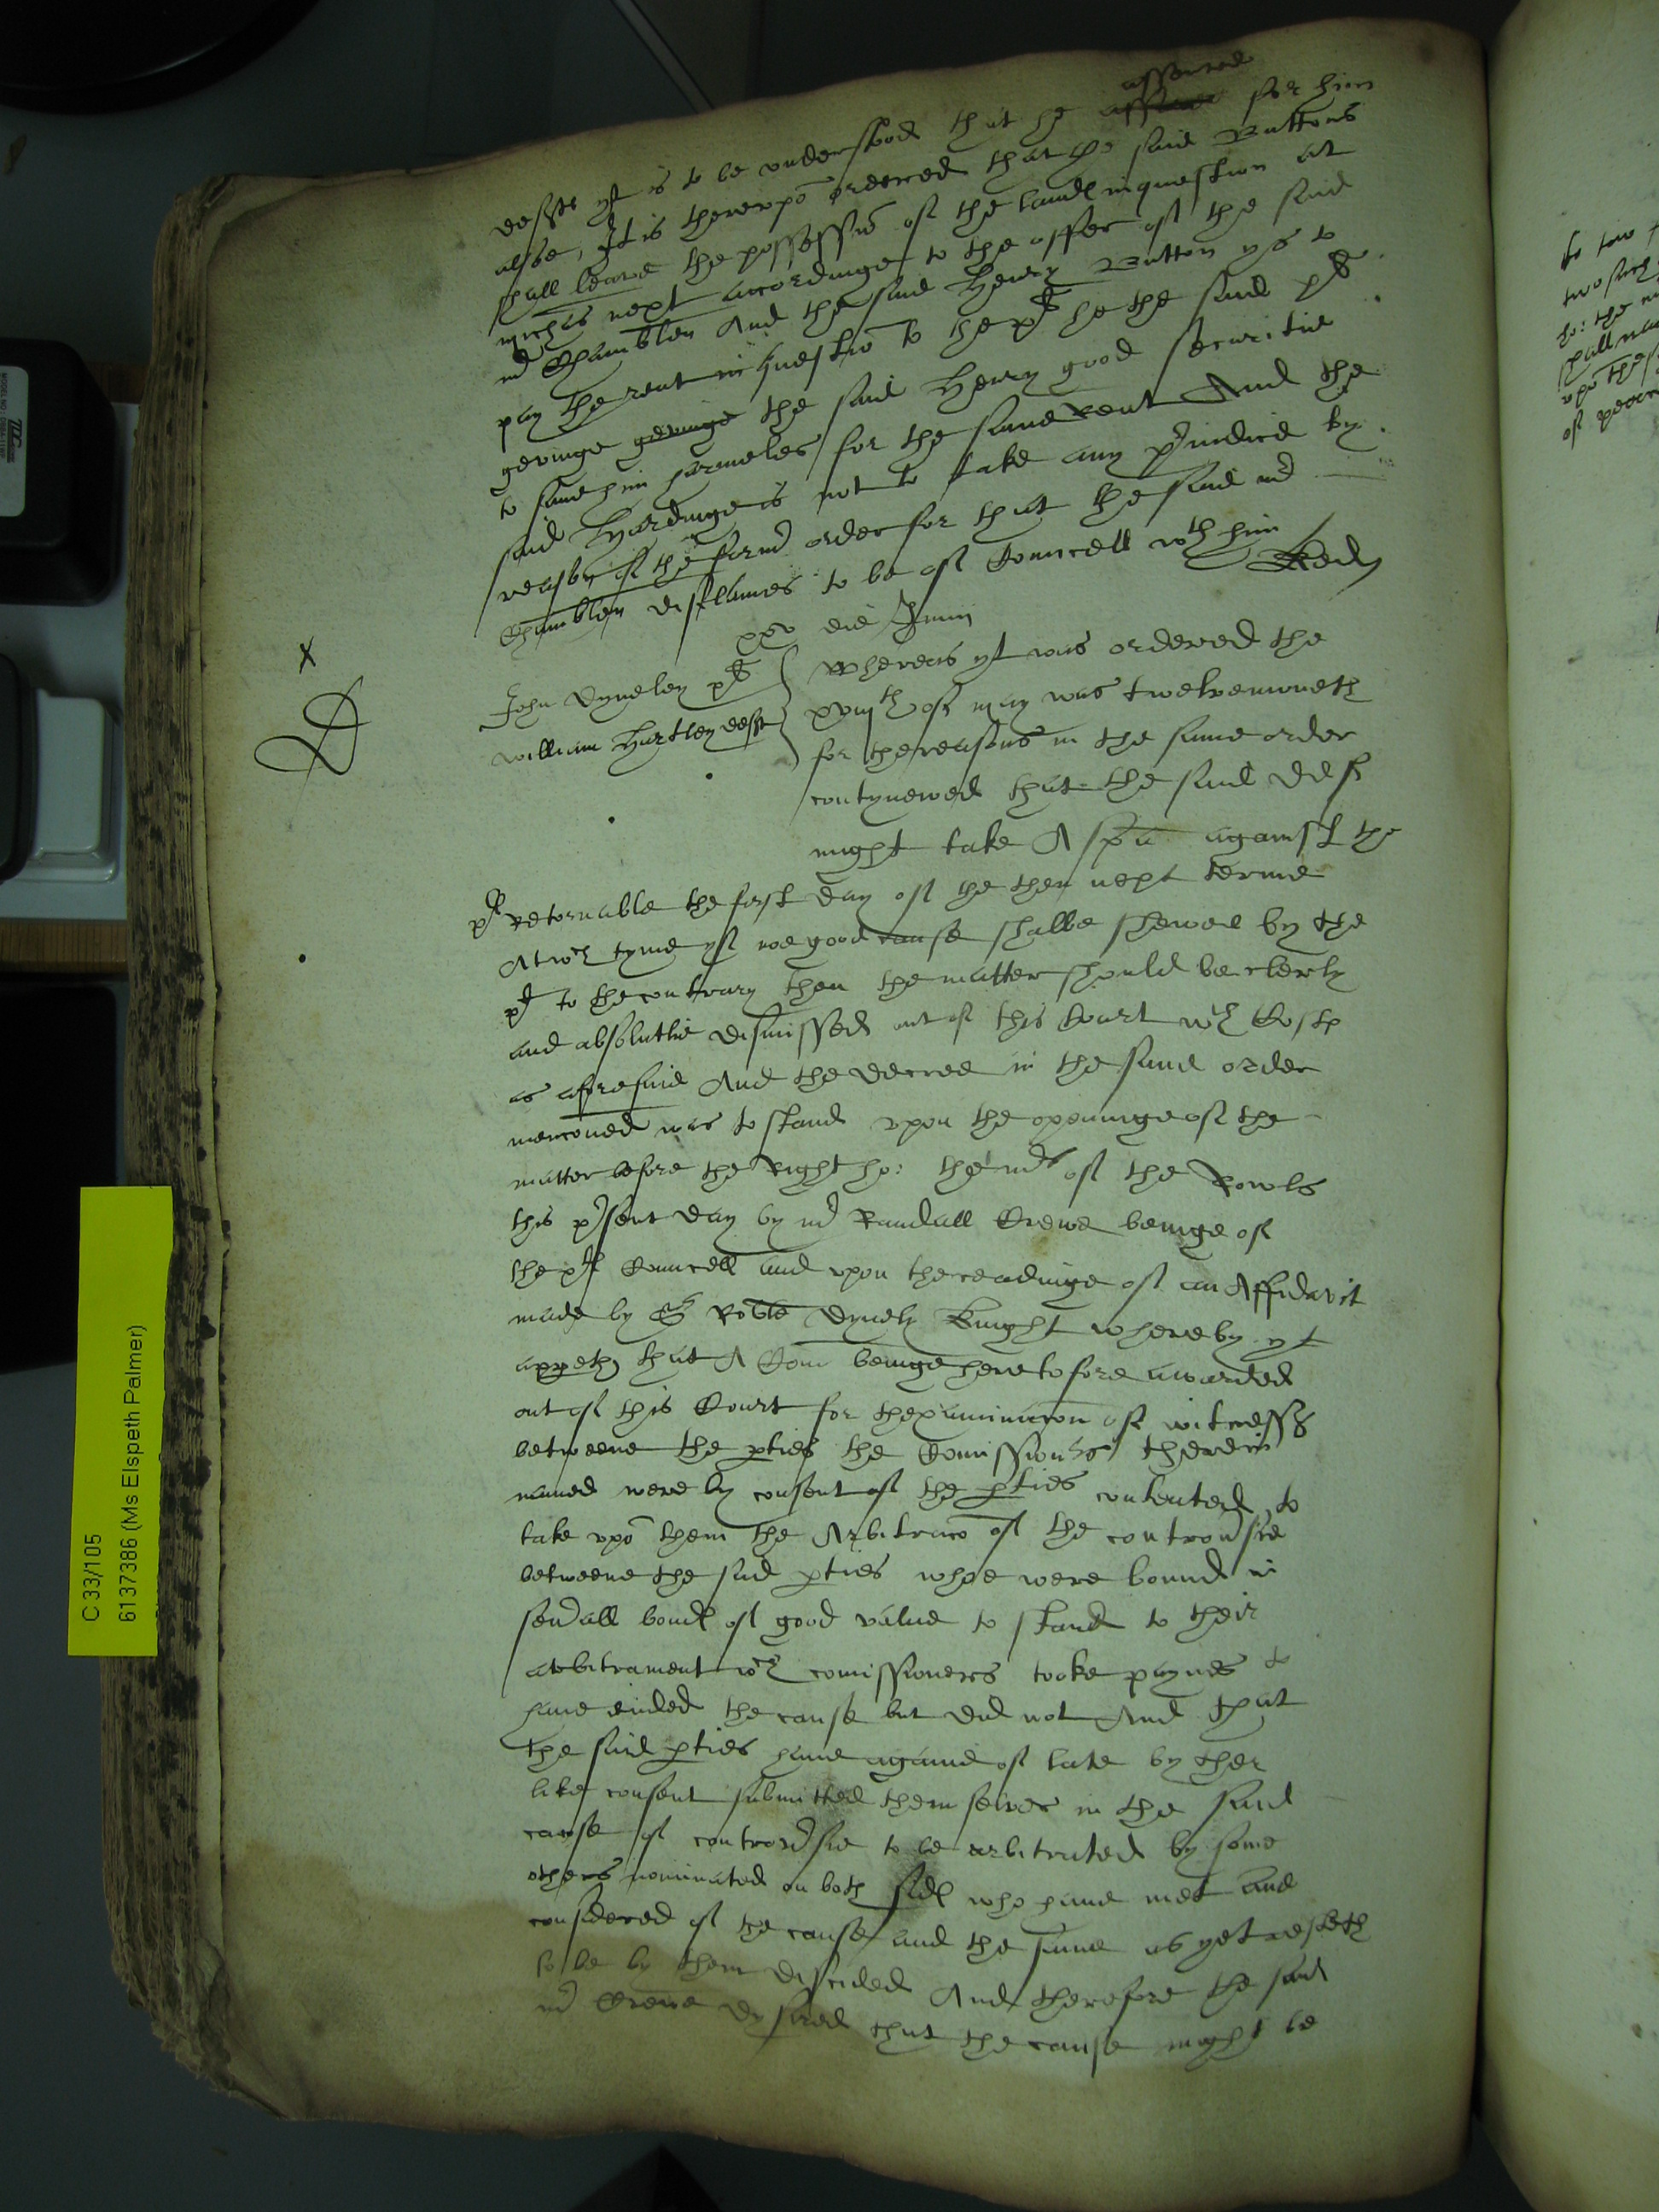 assented
deft yt is to be vnderstood that he for him
also, It is therevpō ordered that the said Buttons
shall leave the possessiō of the landℓ in question at
michās next accordinge to the offer of the said
mr Chamblen And the said Henry Button ys to
pay the rent in questiō to the plt he the said plt
gevinge gevinge the said Henry good securitie
to save him harmeles for the same Rent And the
said Hardinge is not to take any priudice by
reason of the formr order for that the said mr
Chamblen disclames to be of Councell wth him
Redℓ
xxo die Junii
x
D
John Dyneley plt
William Hartley deft
Whereas yt was ordered the
xviijth of may was twelvemoneth
for the reasons in the same order
contynewed that the said deft
might take A spā against the
plt Retornable the first day of the then next terme
At wch tyme yf noe good cause shalbe shewed by the
plt to the contrary then the matter should be clerly
and absolutlie dismissed out of this Court wth Costℓ
as aforesaid And the decree in the same order
mencōned was to stand vpon the openinge of the
matter before the Right ho: the mr of the Rowls
this prsent day by mr Randall Crewe beinge of
the pltℓ Councell and vpon the readinge of an Affidavit
made by Sr Robte Dynely Knight whereby yt
appeth that A Com beinge heretofore awarded
out of this Court for thexaminacon of witnesses
betweene the pties the Comissionrs therein
named were by consent of the pties contented to
take vpō them the Arbitracō of the controvrsie
betweene the said pties whoe were bound in
sevrall bondℓ of good value to stand to their
arbitrament wch comissioners tooke paynes to
have ended the cause but did not And that
the said pties have againe of late by ther
like consent submitted themselves in the said
cause of controvrsie to be arbitrated by some
others nominated on both sidℓ who have met and
considered of the cause and the same as yet resteth
to be by them discided And therefore the said
mr Crewe desired that the cause might be
C 33/105
6137386 (Ms Elspeth Palmer)